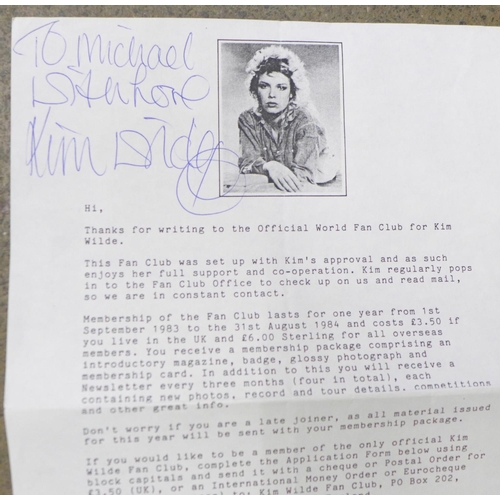 To Michael
With Love
Kim Wilde
Hi,
Thanks for writing to the Official World Fan Club for Kim
Wilde.
This Fan Club was set up with Kim's approval and as such
enjoys her full support and co-operation. Kim regularly pops
in to the Fan Club Office to check up on us and read mail,
so we are in constant contact.
Membership of the Fan Club lasts for one year from 1st
September 1983 to the 31st August 1984 and costs £3.50 if
you live in the UK and £6.00 Sterling for all overseas
members. You receive a membership package comprising an
introductory magazine, badge, glossy photograph and
membership card. In addition to this you will receive a
Newsletter every three months (four in total), each
containing new photos, record and tour details, competitions
and other great info.
Don't worry if you are a late joiner, as all material issued
for this year will be sent with your membership package.
If you would like to be a member of the only official Kim
Wilde Fan Club, complete the Application Form below using
block capitals and send it with a cheque or Postal Order for
£3.50 (UK), or an International Money Order or Eurocheque
to: Kim Wilde Fan Club, PO Box 202,